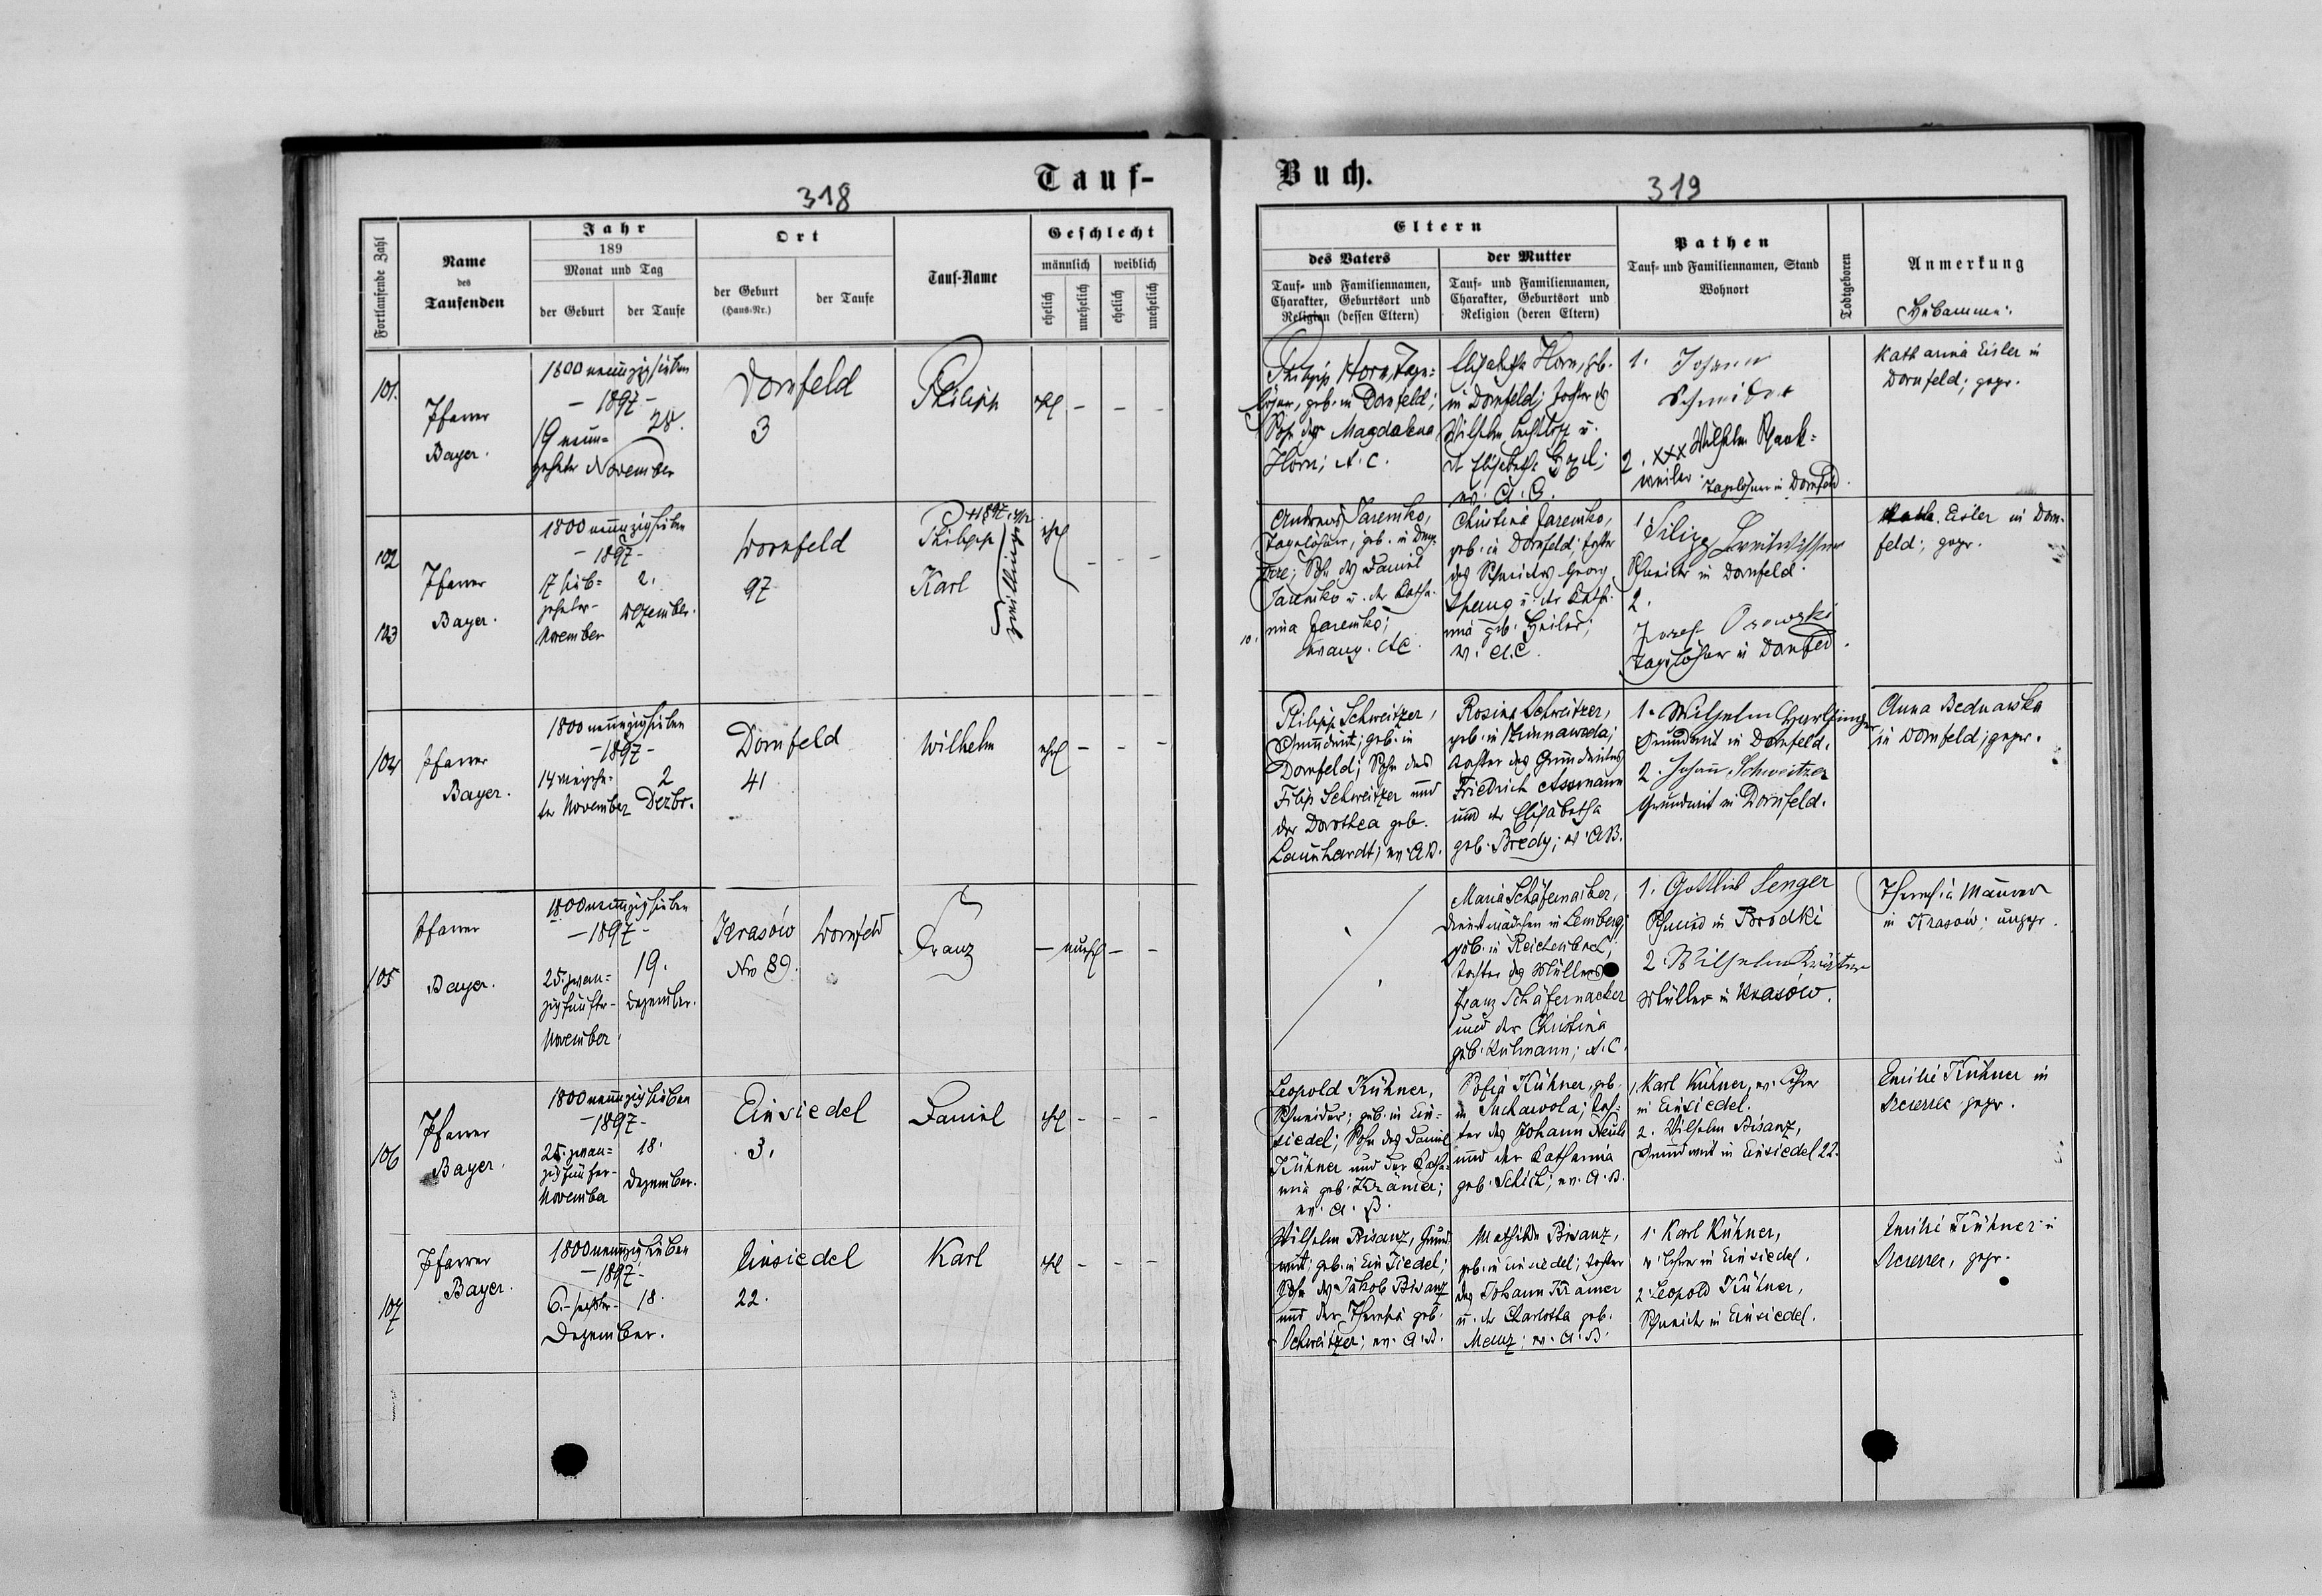 Tauf-
318
Fortlaufende Zahl
Name
des
Taufenden
Jahr
189
Monat und Tag
der Geburt
der Taufe
Ort
der Geburt
(Haus-Nr.)
der Taufe
Tauf-Name
Geschlecht
männlich
weiblich
ehelich
unehelich
ehelich
unehelich
101.
Pfarrer
Bayer.
1800 neunzigsieben
- 1897 -
19 neun-
zehnter November
28.
Dornfeld
3
Philipp
ehel
-
-
-
102
103
Pfarrer
Bayer.
1800 neunzigsieben
- 1897 -
17 sieb-
zehnter-
November
2.
Dezember.
Dornfeld
97
Philipp
Karl
Zwillinge
ehel
-
-
-
104
Pfarrer
Bayer.
1800 neunzigsieben
- 1897 -
14 vierzehn-
ter November
2
Dezbr.
Dornfeld
41
Wilhelm
ehel
-
-
-
105
Pfarrer
Bayer.
1800 neunzigsieben
- 1897 -
25. zwan-
zigfünfter-
November
19.
Dezember.
Krasów
Nro 89.
Dornfeld
Franz
-
unehel
-
-
106
Pfarrer
Bayer.
1800 neunzigsieben
- 1897 -
25. zwan-
zigfünfter-
November
18.
Dezember.
Einsiedel
3.
Daniel
ehel
-
-
-
107
Pfarrer
Bayer.
1800 neunzigsieben
- 1897 -
6.- sechster-
Dezember.
18.
Einsiedel
22.
Karl
ehel
-
-
-
Buch.
319
Eltern
des Vaters
Tauf- und Familiennamen,
Charakter, Geburtsort und
Religion (dessen Eltern)
der Mutter
Tauf- und Familiennamen,
Charakter, Geburtsort und
Religion (deren Eltern)
Pathen
Tauf- und Familiennamen, Stand
Wohnort
Todtgeboren
Anmerkung
Hebamme:
Philipp Horn, Tage-
löhner, geb. in Dornfeld;
Sohn der Magdalena
Horn; A. C.
Elisabeth Horn, geb.
in Dornfeld; Tochter des
Wilhelm u.
der Elisabeth
ev. A. B.
1. Johann
Schneider
2. xxx Wilhelm Schank-
weiler Taglöhner in Dornfeld.
Katharina Eisler in
Dornfeld; gepr.
Andreas Jaremko,
Taglöhner, geb. in
Sohn des Daniel
Jaremko u. der Katha-
rina Jaremko;
evang. AC.
Christine Jaremko,
geb. in Dornfeld; Tochter
des Schneiders Georg
u. der Katha-
rina geb.
ev. A.C.
1. Filipp
Schneider in Dornfeld.
2.
Josef Osowski
Taglöhner in Dornfeld.
Kath. Eisler in Dorn-
feld; gepr.
Philipp Schweitzer,
Grundwirt; geb. in
Dornfeld; Sohn des
Filip Schweitzer und
der Dorothea geb.
Launhardt; ev. A.B.
Rosina Schweitzer,
geb. in
Tochter des Grundwirtes
Friedrich Assmann
und der Elisabetha
geb. Bredy; ev. A.B.
1. Wilhelm
Grundwirt in Dornfeld.
2. Johann Schweitzer
Grundwirt in Dornfeld.
Anna Bednarska
in Dornfeld; gepr.
Maria Schäfernacker,
Dienstmädchen in Lemberg;
geb. in Reichenbach;
Tochter des Müllers
Franz Schäfernacker
und der Christina
geb. Kulmann; A. C.
1. Gottlieb Senger
Schmied in Brodki
2. Wilhelm
Müller in Krasów.
Theresia Maurer
in Krasów; ungepr.
Leopold Kühner,
Schneider; geb. in Ein-
siedel; Sohn des Daniel
Kühner und der Katha-
rina geb. Krämer;
ev. A. B.
Sofia Kühner, geb.
in Suchawola; Toch-
ter des Johann
und der Katharina
geb. Schick; ev. A. B.
1. Karl Kühner, ev. Lehrer
in Einsiedel.
2. Wilhelm Bisanz,
Grundwirt in Einsiedel 22.
Emilie Kühner in
Szczerzec gepr.
Wilhelm Bisanz, Grund-
wirt; geb. in Einsiedel;
Sohn des Jakob Bisanz
und der Theresia geb.
Schweitzer; ev. A. B.
Mathilde Bisanz,
geb. in Einsiedel; Tochter
des Johann Kramer
u. der Charlotta geb.
Manz; ev. A. B.
1. Karl Kühner,
ev. Lehrer in Einsiedel.
2. Leopold Kühner,
Schneider in Einsiedel.
Emilie Kühner in
Szczerzec, gepr.